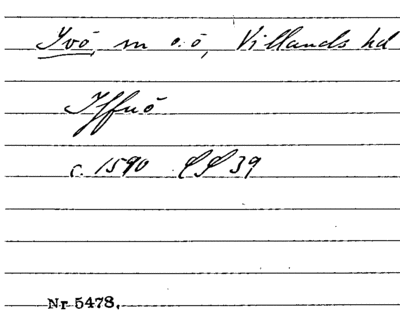 Ivö, m o. ö, Villands hd
Iffuö
c. 1590 SS 39
Nr 5478.